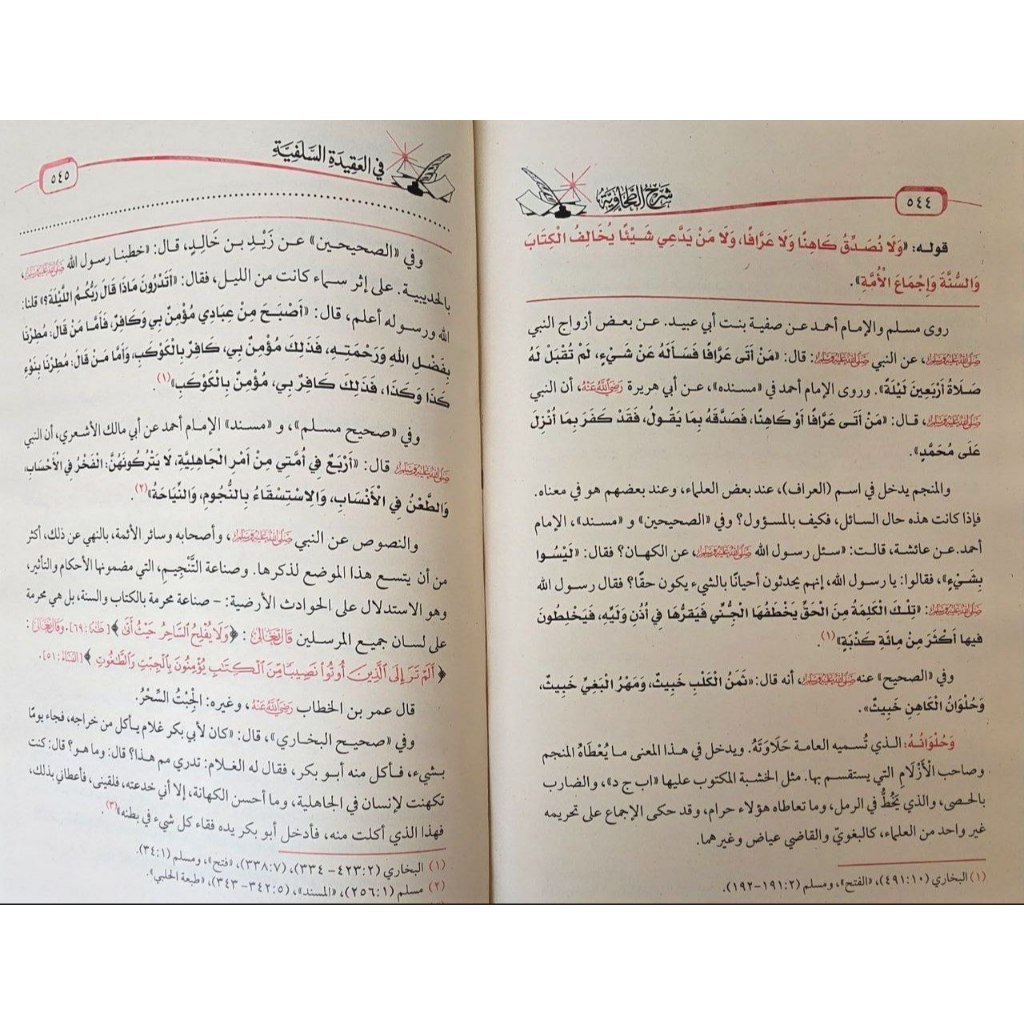 ٥٤٤
شرح الطحاوية
قوله: «وَلَا نُصَدِّقُ كَاهِنًا وَلَا عَرَّافًا، وَلَا مَنْ يَدَّعِي شَيْئًا يُخَالِفُ الْكِتَابَ
وَالسُّنَّةَ وَإِجْمَاعَ الْأُمَّةِ».
روى مسلم والإمام أحمد عن صفية بنت أبي عبيد. عن بعض أزواج النبي
صَلَّى اللَّهُ عَلَيْهِ وَسَلَّمَ، عن النبي صَلَّى اللَّهُ عَلَيْهِ وَسَلَّمَ: قال: «مَنْ أَتَى عَرَّافًا فَسَأَلَهُ عَنْ شَيْءٍ، لَمْ تُقْبَلْ لَهُ
صَلَاةُ أَرْبَعِينَ لَيْلَةً». وروى الإمام أحمد في «مسنده»، عن أبي هريرة رَضِيَ اللَّهُ عَنْهُ، أن النبي
صَلَّى اللَّهُ عَلَيْهِ وَسَلَّمَ، قال: «مَنْ أَتَى عَرَّافًا أَوْ كَاهِنًا، فَصَدَّقَهُ بِمَا يَقُولُ، فَقَدْ كَفَرَ بِمَا أُنْزِلَ
عَلَى مُحَمَّدٍ».
والمنجم يدخل في اسم (العراف)، عند بعض العلماء، وعند بعضهم هو في معناه.
فإذا كانت هذه حال السائل، فكيف بالمسؤول؟ وفي «الصحيحين» و «مسند»، الإمام
أحمد عن عائشة، قالت: «سئل رسول الله صَلَّى اللَّهُ عَلَيْهِ وَسَلَّمَ، عن الكهان؟ فقال: «لَيْسُوا
بِشَيْءٍ»، فقالوا: يا رسول الله، إنهم يحدثون أحيانًا بالشيء يكون حقًا؟ فقال رسول الله
صَلَّى اللَّهُ عَلَيْهِ وَسَلَّمَ: «تِلْكَ الْكَلِمَةُ مِنَ الْحَقِّ يَخْطَفُهَا الْجِنِّي فَيَقرُّهَا فِي أُذُنِ وَلِيِّهِ، فَيَخْلِطُونَ
فيها أَكْثَرَ مِنْ مِائَةِ كَذْبَةٍ»(١)
وفي «الصحيح» عنه صَلَّى اللَّهُ عَلَيْهِ وَسَلَّمَ، أنه قال: «ثَمَنُ الْكَلْبِ خَبِيثٌ، وَمَهْرُ الْبَغِيِّ خَبِيثٌ،
وَحُلْوَانُ الْكَاهِنِ خَبِيثٌ».
وَحُلْوَانُهُ: الذي تُسميه العامة حَلَاوَتَهُ. ويدخل في هذا المعنى ما يُعْطَاهُ المنجم
وصاحب الْأَزْلَامِ التي يستقسم بها. مثل الخشبة المكتوب عليها «ا ب ج د»، والضارب
بالحصى، والذي يَخُطُّ في الرمل، وما تعاطاه هؤلاء حرام، وقد حكى الإجماع على تحريمه
غير واحد من العلماء، كالبغويّ والقاضي عياض وغيرهما.
(١) البخاري (٤٩١:١٠)، «الفتح»، ومسلم (١٩١:٢-١٩٢).
في العقيدة السلفية
٥٤٥
وفي «الصحيحين» عن زَيْدِ بن خَالِدٍ، قال: «خطبنا رسول الله صَلَّى اللَّهُ عَلَيْهِ وَسَلَّمَ،
بالحديبية. على إثر سماء كانت من الليل، فقال: «أَتَدْرُونَ مَاذَا قَالَ رَبُّكُمُ اللَّيْلَةَ؟» قلنا:
الله ورسوله أعلم، قال: «أَصْبَحَ مِنْ عِبَادِي مُؤْمِنٌ بِي وَكَافِرٌ، فَأَمَّا مَنْ قَالَ: مُطِرْنَا
بِفَضْلِ اللهِ وَرَحْمَتِهِ، فَذَلِكَ مُؤْمِنٌ بِي، كَافِرٌ بِالْكَوْكَبِ، وَأَمَّا مَنْ قَالَ: مُطِرْنَا بِنَوْءِ
كَذَا وَكَذَا، فَذَلِكَ كَافِرٌ بِي، مُؤْمِنٌ بِالْكَوْكَبِ»(١)
وفي «صحيح مسلم»، و «مسند» الإمام أحمد عن أبي مالك الأشعري، أن النبي
صَلَّى اللَّهُ عَلَيْهِ وَسَلَّمَ قال: «أَرْبَعٌ فِي أُمَّتِي مِنْ أَمْرِ الْجَاهِلِيَّةِ، لَا يَتْرُكُونَهُنَّ: الْفَخْرُ فِي الْأَحْسَابِ،
وَالطَّعْنُ فِي الْأَنْسَابِ، وَالِاسْتِسْقَاءُ بِالنُّجُومِ، وَالنِّيَاحَةُ»(٢)
والنصوص عن النبي صَلَّى اللَّهُ عَلَيْهِ وَسَلَّمَ، وأصحابه وسائر الأئمة، بالنهي عن ذلك، أكثر
من أن يتسع هذا الموضع لذكرها. وصناعة التَّنْجِيمِ، التي مضمونها الأحكام والتأثير،
وهو الاستدلال على الحوادث الأرضية: - صناعة محرمة بالكتاب والسنة، بل هي محرمة
على لسان جميع المرسلين قال تعالى: ﴿وَلَا يُفْلِحُ السَّاحِرُ حَيْثُ أَتَى﴾ [طه: ٦٩]. وقال تعالى:
﴿أَلَمْ تَرَ إِلَى الَّذِينَ أُوتُوا نَصِيبًا مِنَ الْكِتَابِ يُؤْمِنُونَ بِالْجِبْتِ وَالطَّاغُوتِ﴾ [النساء: ٥١].
قال عمر بن الخطاب رَضِيَ اللَّهُ عَنْهُ، وغيره: الْجِبْتُ السِّحْرُ.
وفي «صحيح البخاري»، قال: «كان لأبي بكر غلام يأكل من خراجه، فجاء يومًا
بشيء، فأكل منه أبو بكر، فقال له الغلام: تدري مم هذا؟ قال: وما هو؟ قال: كنت
تكهنت لإنسان في الجاهلية، وما أحسن الكهانة، إلا أني خدعته، فلقيني، فأعطاني بذلك،
فهذا الذي أكلت منه، فأدخل أبو بكر يده فقاء كل شيء في بطنه»(٣)
(١) البخاري (٤٢٣:٢-٣٣٤)، (٣٣٨:٧)، «فتح»، ومسلم (٣٤:١).
(٢) مسلم (٢٥٦:١)، «المسند»، (٣٤٢:٥-٣٤٣)، «طبعة الحلبي».